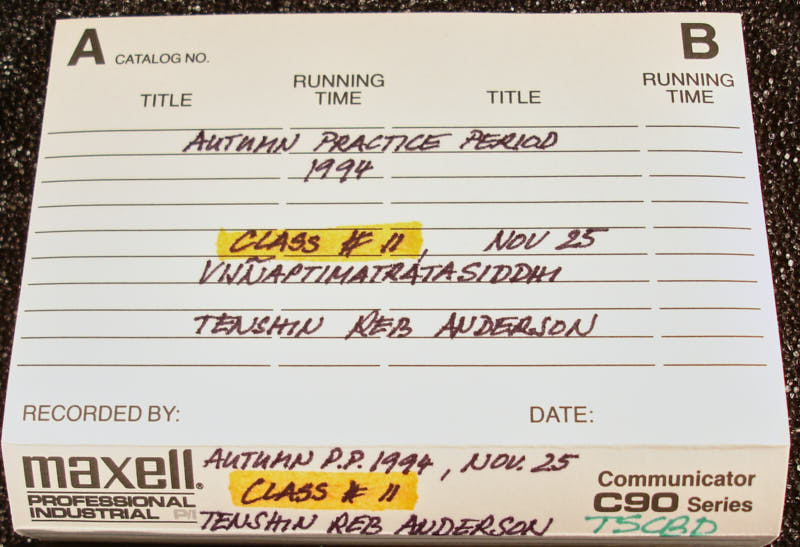 A CATALOG NO. B
TITLE RUNNING TIME TITLE RUNNING TIME
AUTUMN PRACTICE PERIOD
1994
CLASS # 11, NOV 25
VIJÑAPTIMATRÁTASIDDHI
TENSHIN REB ANDERSON
RECORDED BY: DATE:
maxell® AUTUMN P.P. 1994, NOV. 25
PROFESSIONAL INDUSTRIAL P/I
CLASS # 11
TENSHIN REB ANDERSON
Communicator
C90 Series
TSCBD